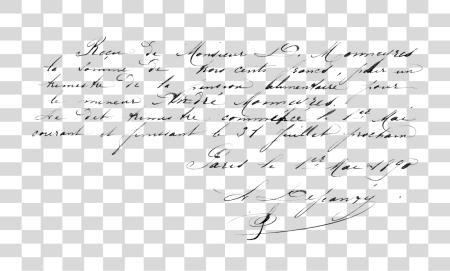 Reçu de Monsieur D. Monneyres
la somme de trois cents francs, pour un
trimestre de la pension alimentaire pour
le mineur André Monneyres.
Le dit trimestre commence le 1er Mai
courant et finissant le 31 juillet prochain
Paris le 1er Mai 1890